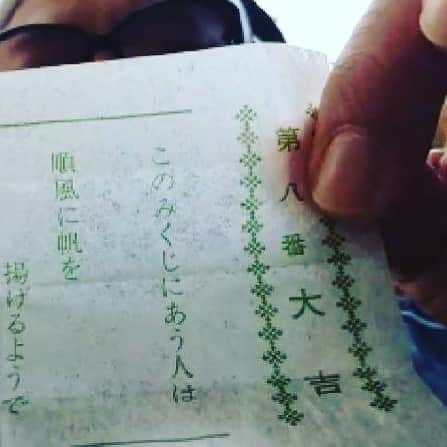 第八番 大吉
このみくじにあう人は
順風に帆を
揚げるようで